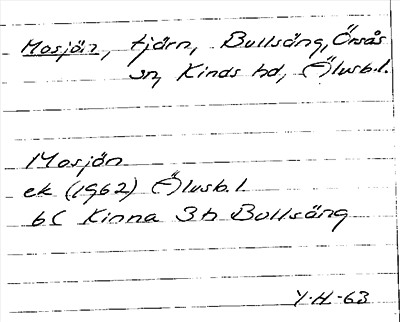 Mosjön, tjärn, Bullsäng, Örsås
sn, Kinds hd, Älvsb.l.
Mosjön
ek (1962) Älvsb.l.
6C Kinna 3h Bullsäng
Y.H.-63